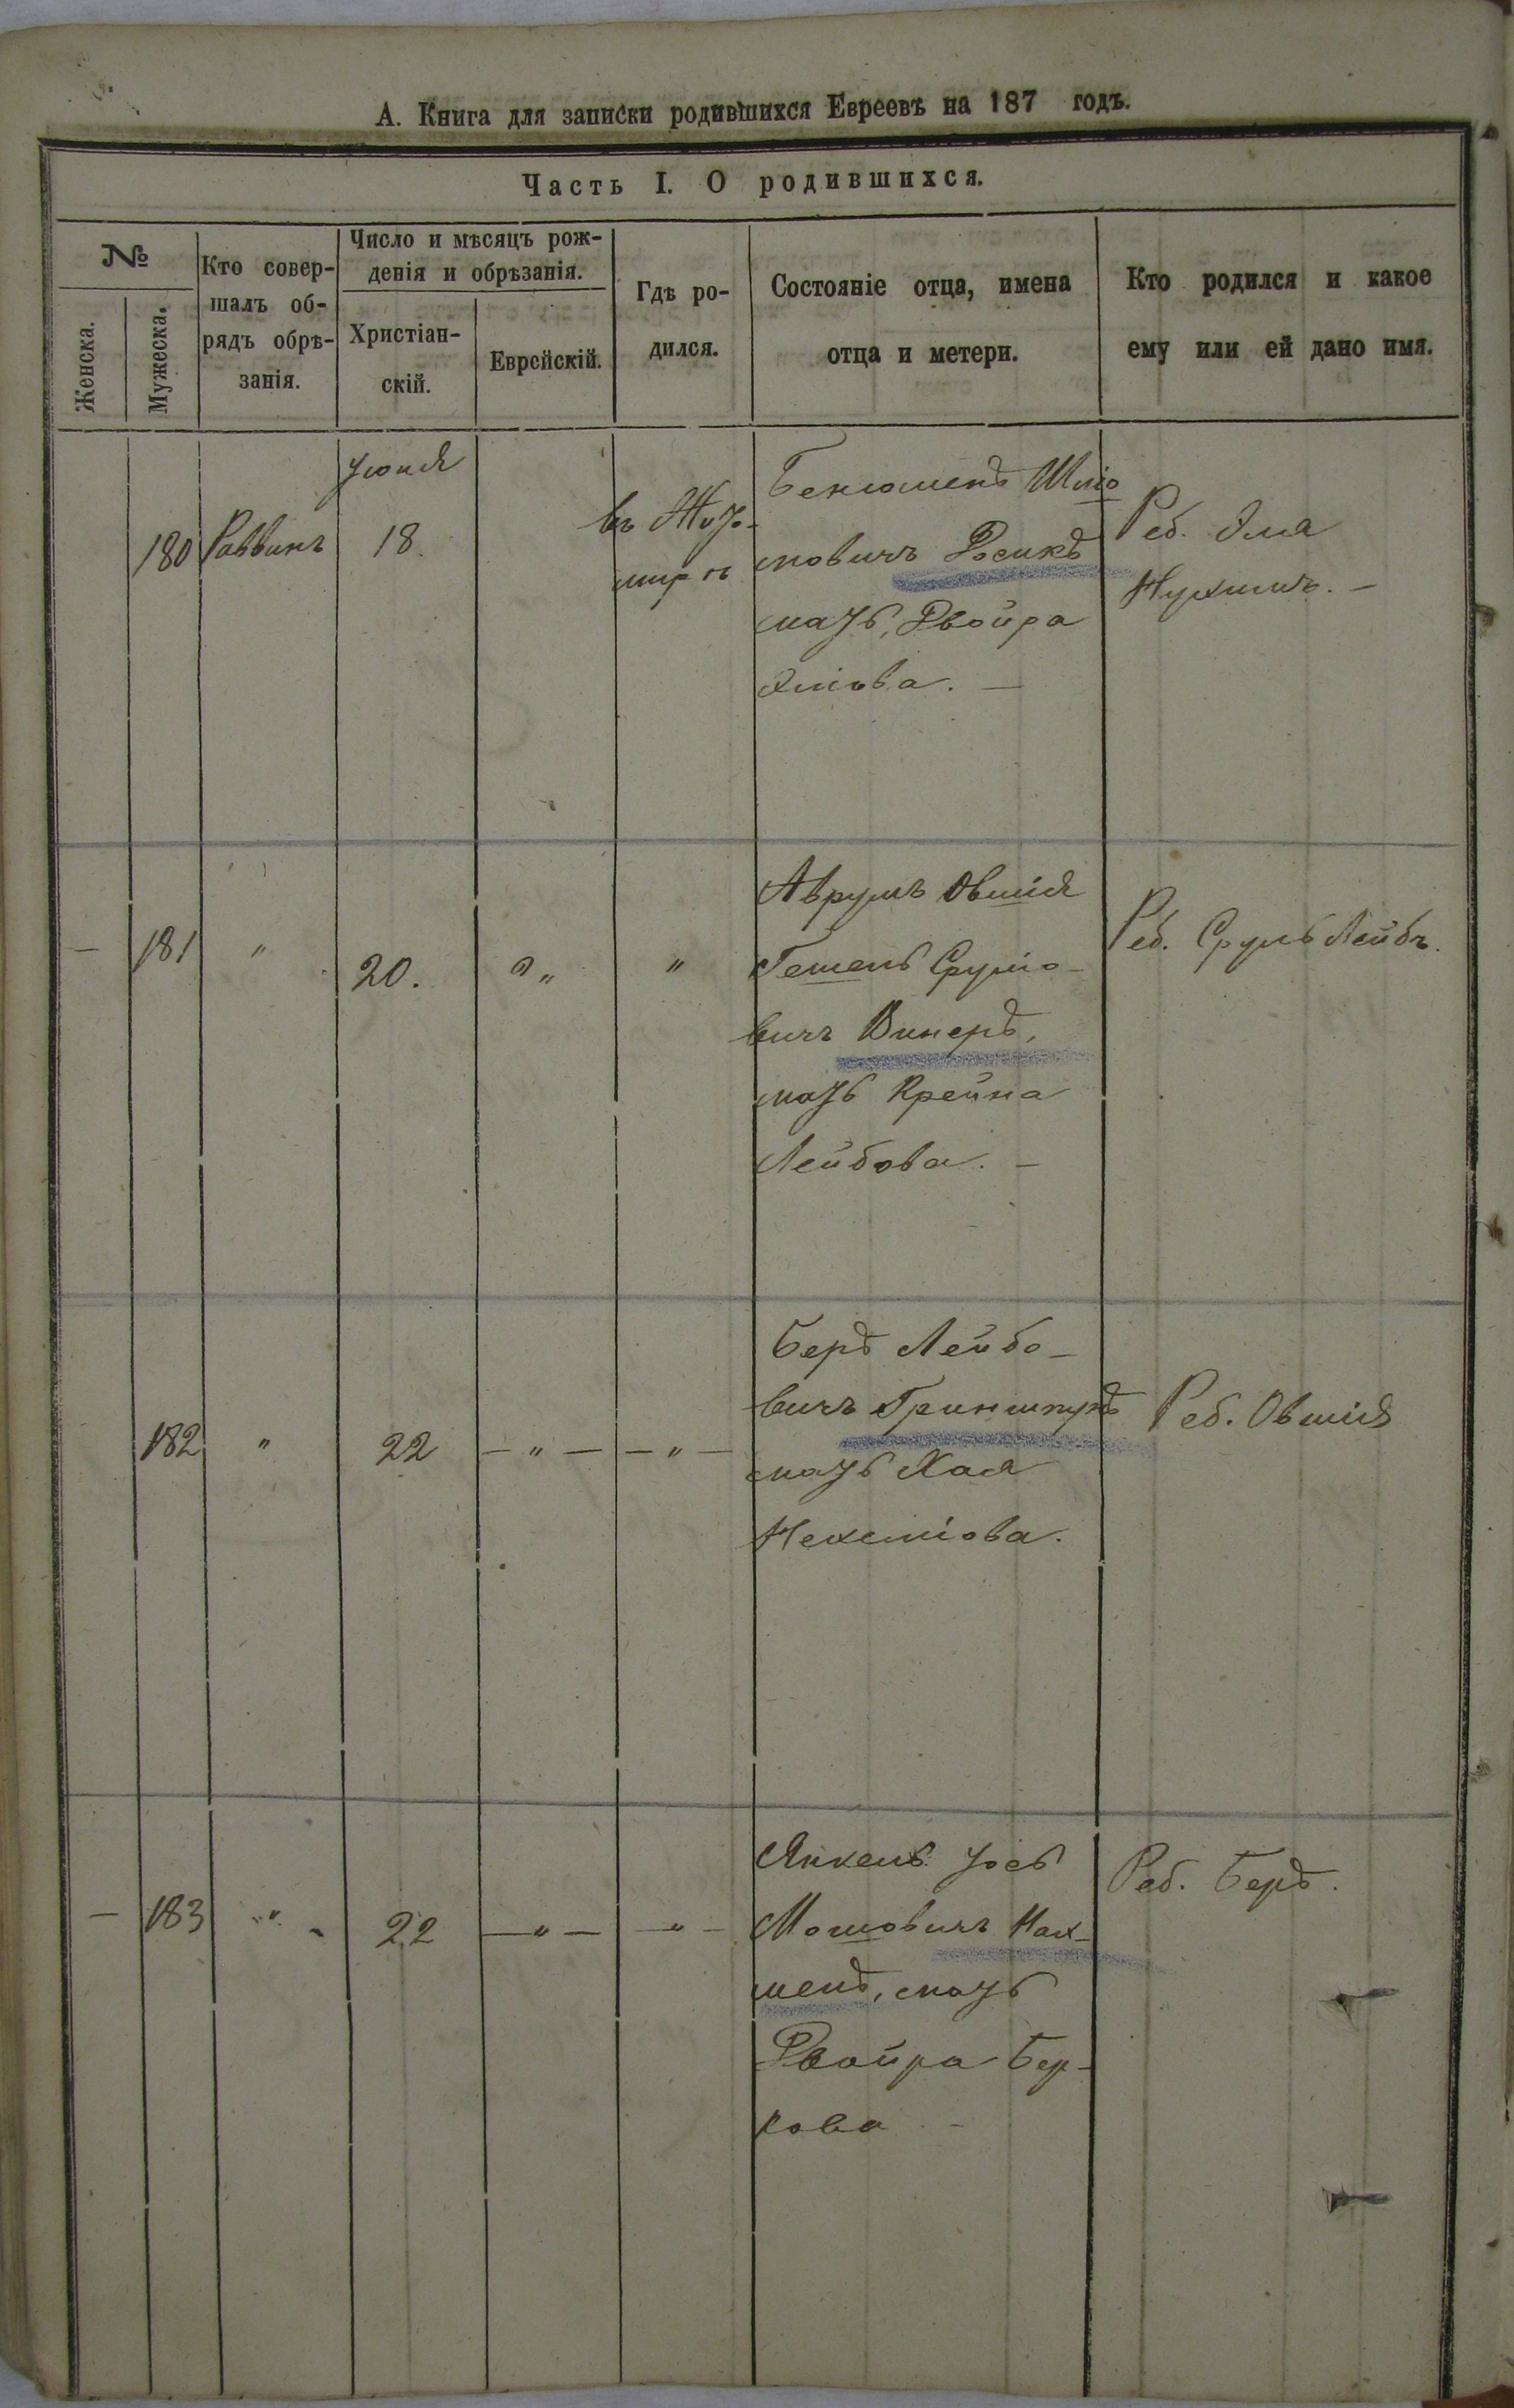 А. Книга для записки родившихся Евреевъ на 187 годъ.
Часть I. О родившихся.
№
Женска.
Мужеска.
Кто совер-
шалъ об-
рядъ обрѣ-
занія.
Число и мѣсяцъ рож-
денія и обрѣзанія.
Христіан-
скій.
Еврейскій.
Гдѣ ро-
дился.
Состояніе отца, имена
отца и метери.
Кто родился и какое
ему или ей дано имя.
Іюня
180 Раввинъ 18.
въ Жито-
мирѣ
Бенюменъ Шліо
мовичъ
мать, Двойра
Реб. Эля
Нухимъ. —
— 181 " 20. " "
Аврумъ Овшія
Гешель Сруліо-
вичъ Винеръ,
мать Крейна
Лейбова. —
Реб. Сруль Лейбъ.
182 " 22 — " — — " —
Беръ Лейбо-
вичъ
мать Хая
Нехеміова.
Реб. Овшія
— 183 " 22 — " — — " —
Янкель Іось
Мошовичъ Нах-
менъ, мать
Двойра Бер-
кова —
Реб. Беръ.